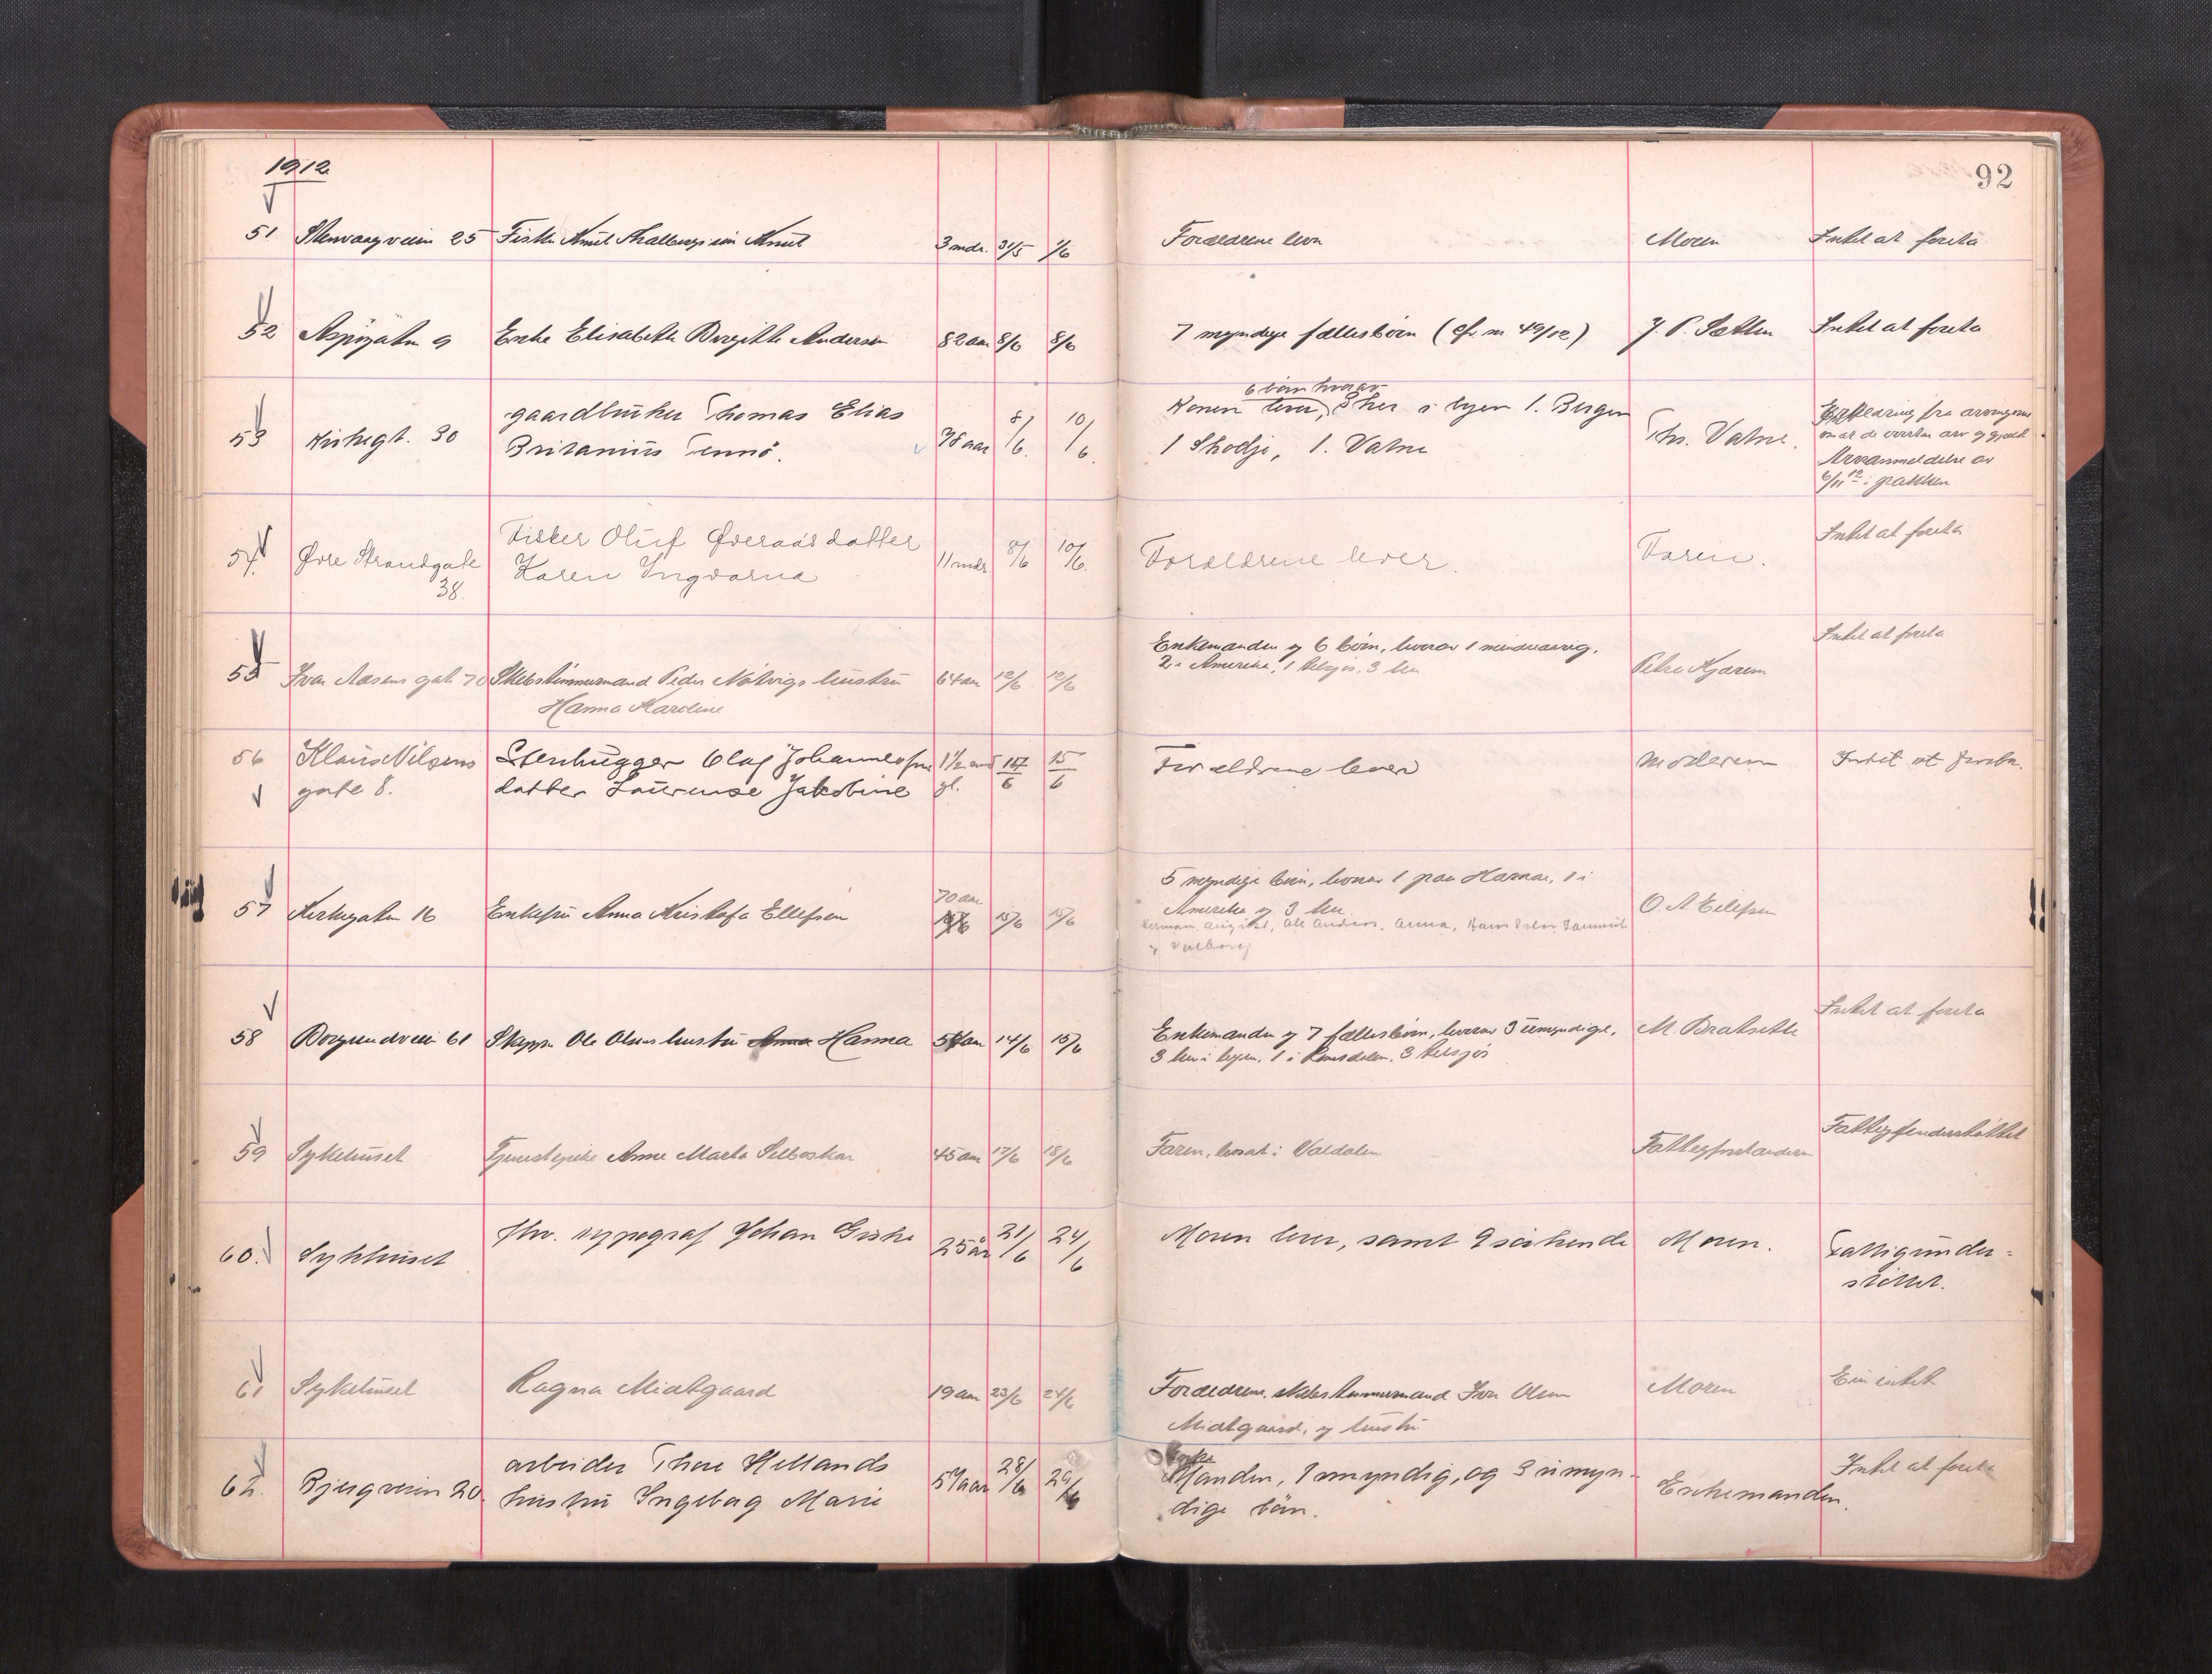 1912.
92
51 Stenvaagveien 25 Fisker Knut Skalbergs søn Knut 3 mdr. 31/5 1/6 Forældrene lever Moren Intet at foreta
52 Aspøgaten 9 Enke Elisabeth Birgitte Andersen 82 aar 8/6 8/6 7 myndige fællesbørn (cfr. nr 49/12) J. P. Sætter Intet at foreta
6 børn hvorav
53 Kirkegt. 30 gaardbruker Thomas Elias 78 aar 8/6. 10/6. Konen lever, 3 her i byen 1. Bergen Ths. Vatne. Erklæring fra arvingerne
Britanius Tennø. 1 Skodje, 1. Vatne om at de overtar arv og gjæld
Arveanmeldelse av
6/11 12 i pakken
54. Øvre Strandgate Fisker Oluf Øveraas datter 11 mdr. 8/6 10/6. Forældrene lever. Faren. Intet at foreta
38. Karen Ingvarna
55 Ivar Aasens gate 70 Skibstømmermand Peder Nøtvigs hustru 64 aar 12/6 12/6 Enkemanden og 6 børn, hvorav 1 mindreaarig. Petre Kjærem Intet at foreta
Hanna Karoline 2 i Amerika, 1 tilsjøs, 3 her
56 Klaus Nilsens Stenhugger Olaf Johannessen 1 1/2 mnd 15/6 15/6 Forældrene lever Moderen Intet at foreta.
gate 8. datter Laurense Jakobine gl.
57 Kirkegaten 16 Enkefru Anna Kristofa Ellefsen 70 aar 15/6 15/6 5 myndige børn, hvorav 1 paa Harøe, 1 i O. A. Ellefsen
Amerika og 3 her
Herman August, Ole Andreas, Anna, Hans Peter Samuel
og Valborg
58 Borgundveien 61 Skipper Ole Olsens hustru Anna Hanna 54 aar 14/6 15/6 Enkemanden og 7 fællesbørn, hvorav 3 umyndige, M. Bratseth Intet at foreta
3 her i byen, 1 i Romsdalen, 3 tilsjøs
59 Sykehuset Tjenestepike Anne Marta Selboskar 45 aar 17/6 18/6 Faren, bosat i Valdalen Fattigforstanderen Fattigunderstøttet
60. Sykehuset fhv. typograf Johan Giske 25 år 21/6 24/6 Moren lever, samt 9 søskende Moren. Fattigunder-
støttet.
61 Sykehuset Ragna Midtgaard 19 aar 23/6 24/6 Forældrene, skibstømmermand Iver Olsen Moren Eiet intet
Midtgaard, og hustru
62. Bjergveien 20. arbeider Thore Hellands 57 aar 28/6 29/6 Manden, 1 myndig, og 3 umyn- Enkemanden. Intet at foreta
hustru Ingeborg Marie dige børn.